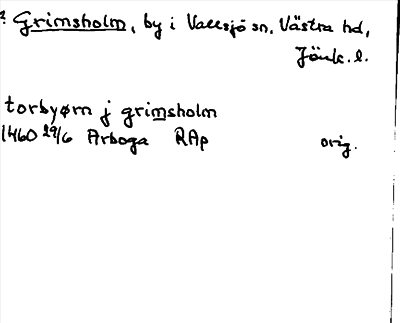 ? Grimsholm, by i Vallsjö sn, Västra hd,
Jönk. l.
torbyørn j grimsholm
1460 29/6 Arboga RAp orig.